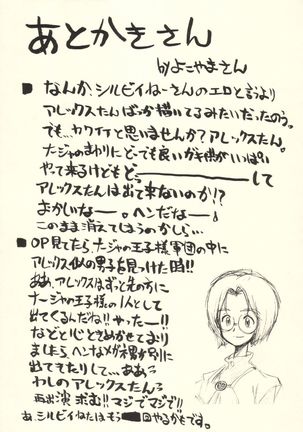 あとかきさん
byよこやまさん
■なんか、シルビィねーさんのエロと言うより
アレックスたんばっか描いてるみたいだったのう。
でも…カワイイと思いませんか?アレックスたん。
ナージャのまわりにどーでも良いガキ供がいっぱい
やって来るけどもどぅ━━━━━して
アレックスたんは出て来ないのか!?
おかしいなー。ヘンだなー。
このまま消えてしまうのかしら…
■OP見てたらナージャの王子様軍団の中に
アレックス似の男子を見っけた時!!
ああ、アレックスはずっと先の方に
ナージャの王子様の1人として
出てくるんだね!!やったー!!
などと心ときめかせており
ましたら、ヘンなメガネ男が別に
出てきたりして…ああう
わしのアレックスたんう
再出演求む!!マジでマジで!!
あ、シルビィねたはもう回やるかもです。